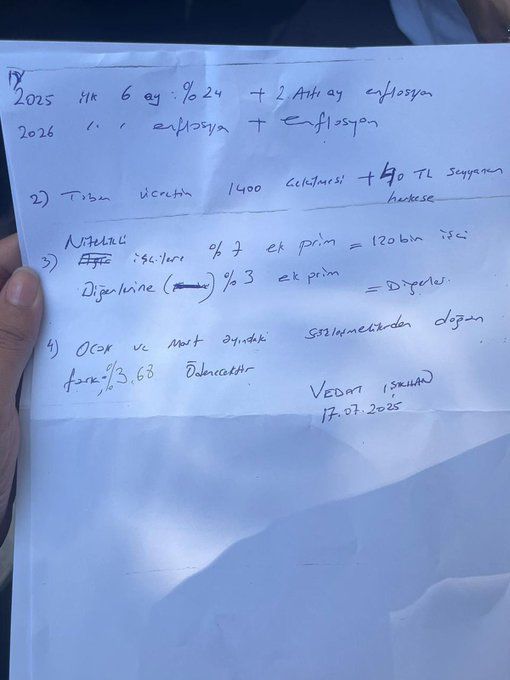 1)
2025 ilk 6 ay : %24 + 2. Altı ay enflasyon
2026 " " enflasyon + enflasyon
2) Taban ücretin 1400 çekilmesi + 40 TL seyyanen
herkese
3) Nitelikli işçilere %7 ek prim = 120 bin işçi
Diğerlerine ( ) %3 ek prim = Diğerler.
4) Ocak ve Mart ayındaki sözleşmelilerden doğan
fark %3.68 Ödenecektir
VEDAT IŞIKHAN
17.07.2025